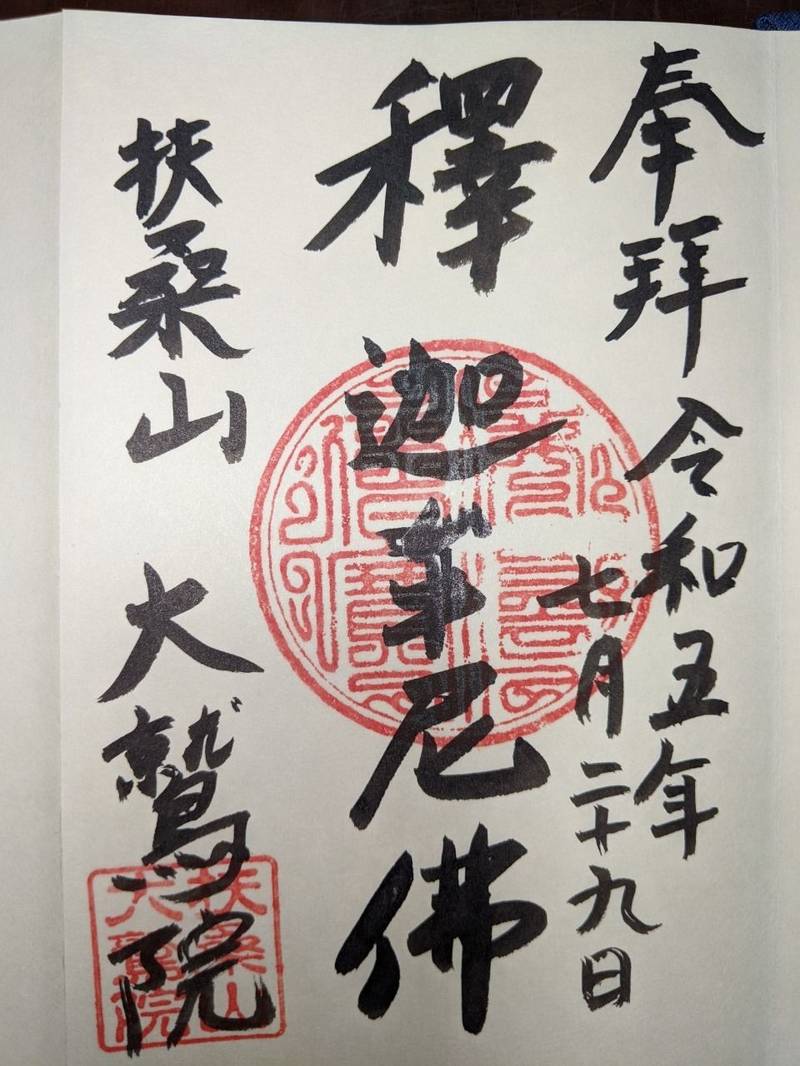 奉拝 令和五年
七月二十九日
釋迦牟尼佛
扶桑山 大鷲院
扶桑山
大鷲院